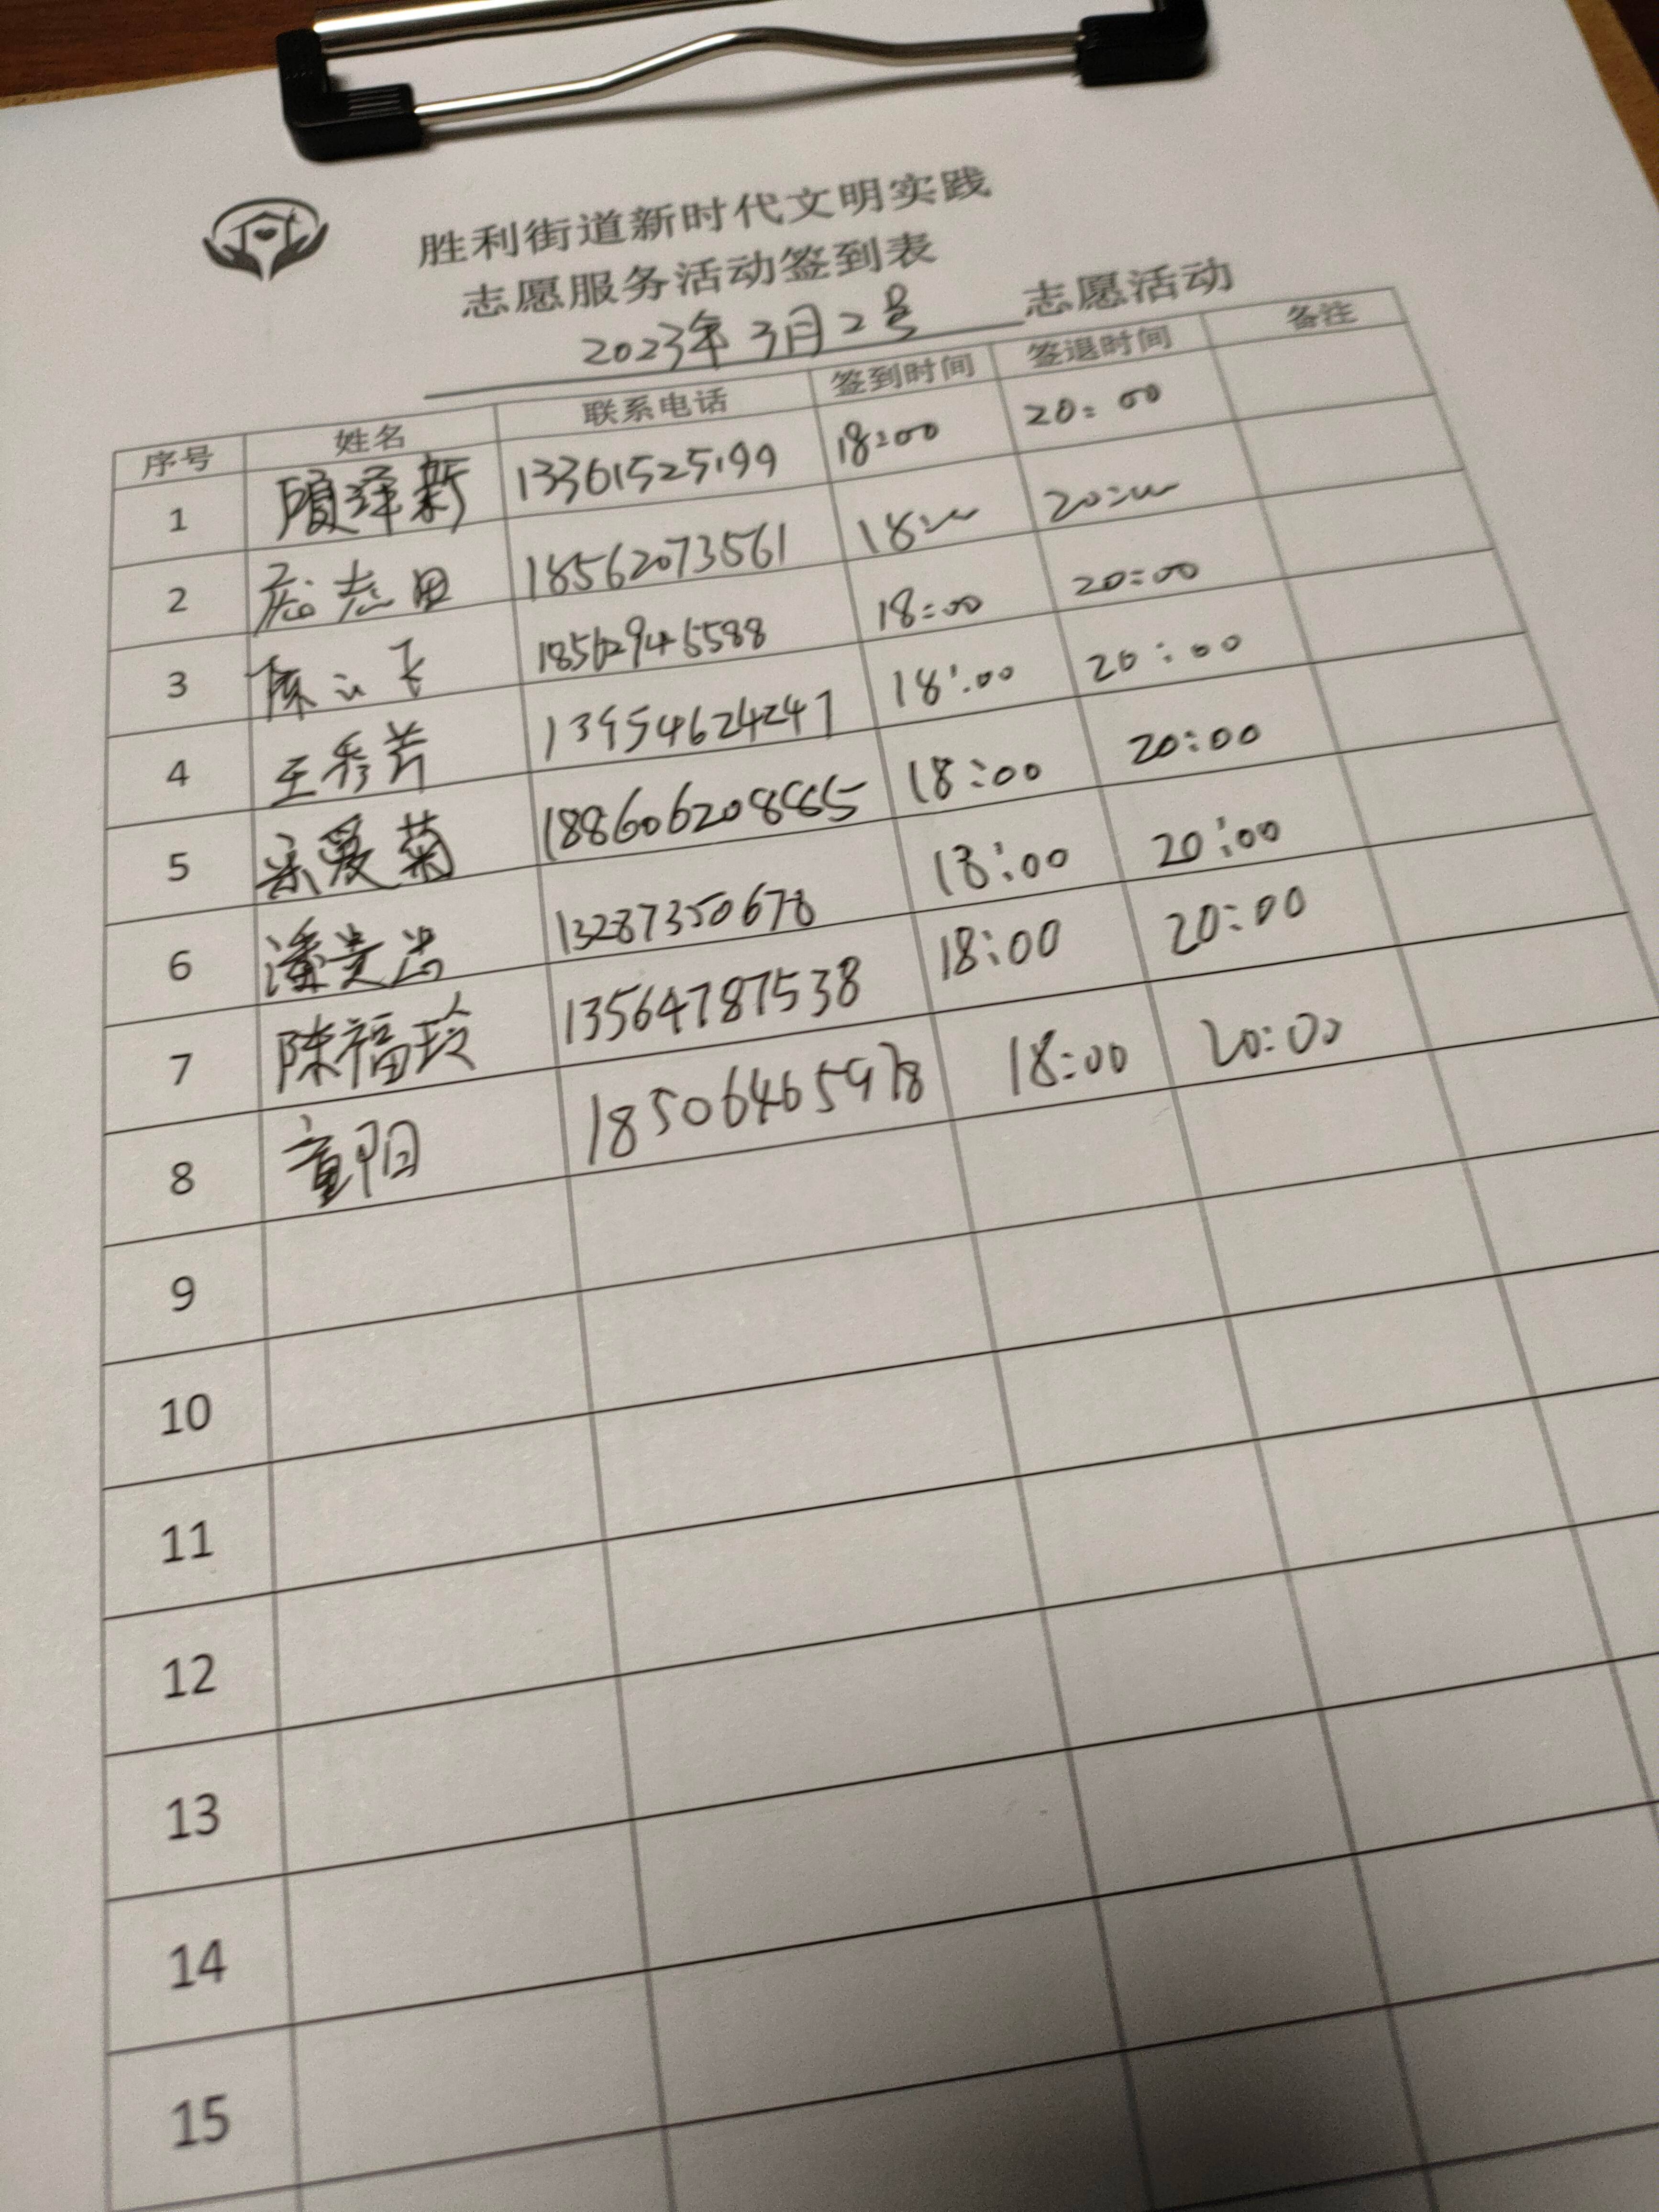 胜利街道新时代文明实践
志愿服务活动签到表
2023年3月2号 志愿活动
序号 姓名 联系电话 签到时间 签退时间 备注
1 顾泽新 13361525199 18:00 20:00
2 志田 18562073561 18:00 20:00
3 陈云飞 18562946588 18:00 20:00
4 王秀芳 13954624247 18:00 20:00
5 宗爱菊 188606208885 18:00 20:00
6 潘贵 13287350678 18:00 20:00
7 陈福玲 13564787538 18:00 20:00
8 童阳 18506465978 18:00 20:00
9
10
11
12
13
14
15